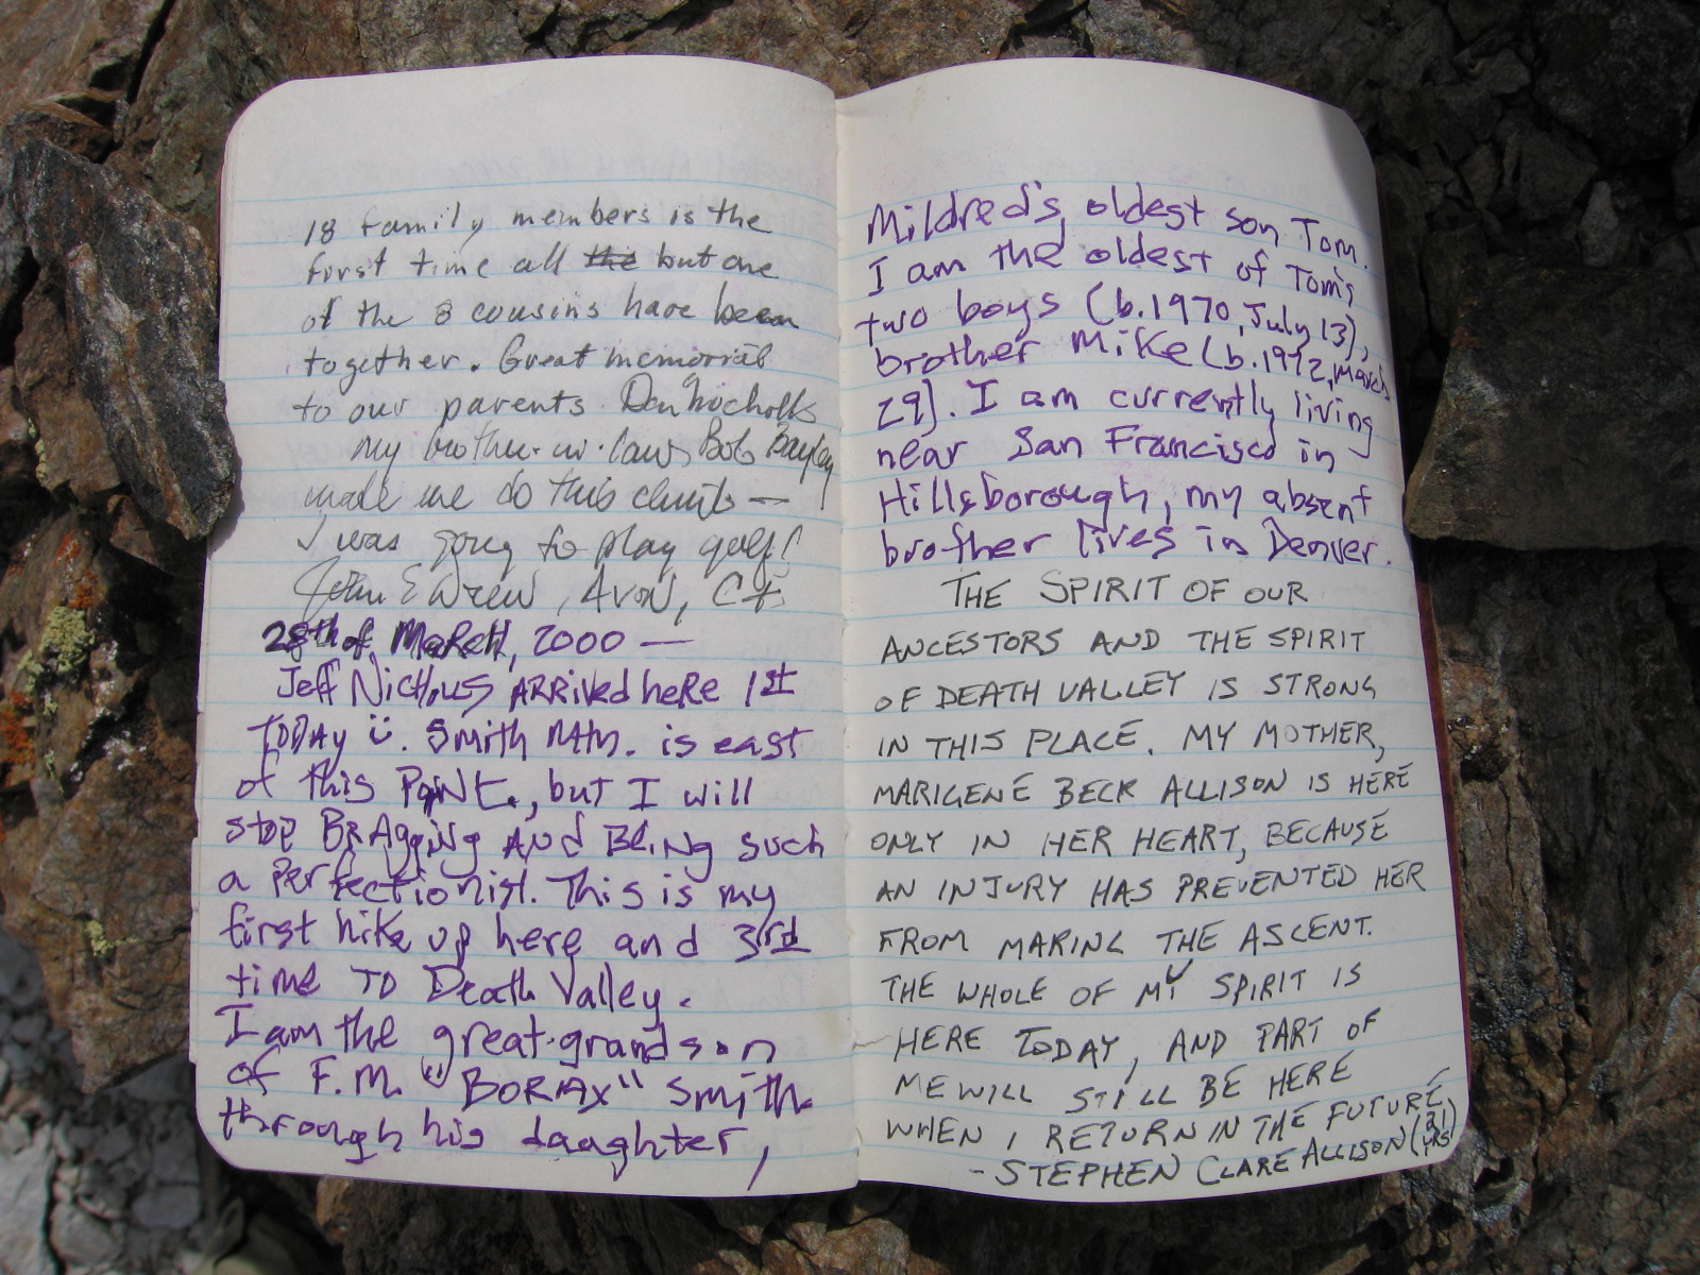 18 family members is the
first time all the but one
of the 8 cousins have been
together. Great memorial
to our parents. Don Nicholls
My brother-in-law, Bob Bayley
made me do this climb —
I was going to play golf!
John E Wrew, Avon, Ct.
28th of MaRcH, 2000 —
Jeff Nicholls ARRived heRe 1st
TODAy ü. Smith Mtn. is east
of this PoiNt., but I will
stop BRAgging AND BeiNg such
a Perfectionist. This is my
first hike up here and 3rd
time TO Death Valley.
I am the great-grandson
of F.M. "BORAX" Smith
through his daughter,
Mildred's oldest son Tom.
I am the oldest of Tom's
two boys (b.1970, July 13),
brother Mike (b.1972, March
29). I am currently living
near San Francisco in
Hillsborough, my absent
brother lives in Denver.
THE SPIRIT OF OUR
ANCESTORS AND THE SPIRIT
OF DEATH VALLEY IS STRONG
IN THIS PLACE. MY MOTHER,
MARIGENE BECK ALLISON IS HERE
ONLY IN HER HEART, BECAUSE
AN INJURY HAS PREVENTED HER
FROM MAKING THE ASCENT.
THE WHOLE OF MY SPIRIT IS
HERE TODAY, AND PART OF
ME WILL STILL BE HERE
WHEN I RETURN IN THE FUTURE
- STEPHEN CLARE ALLISON (21 YRS)